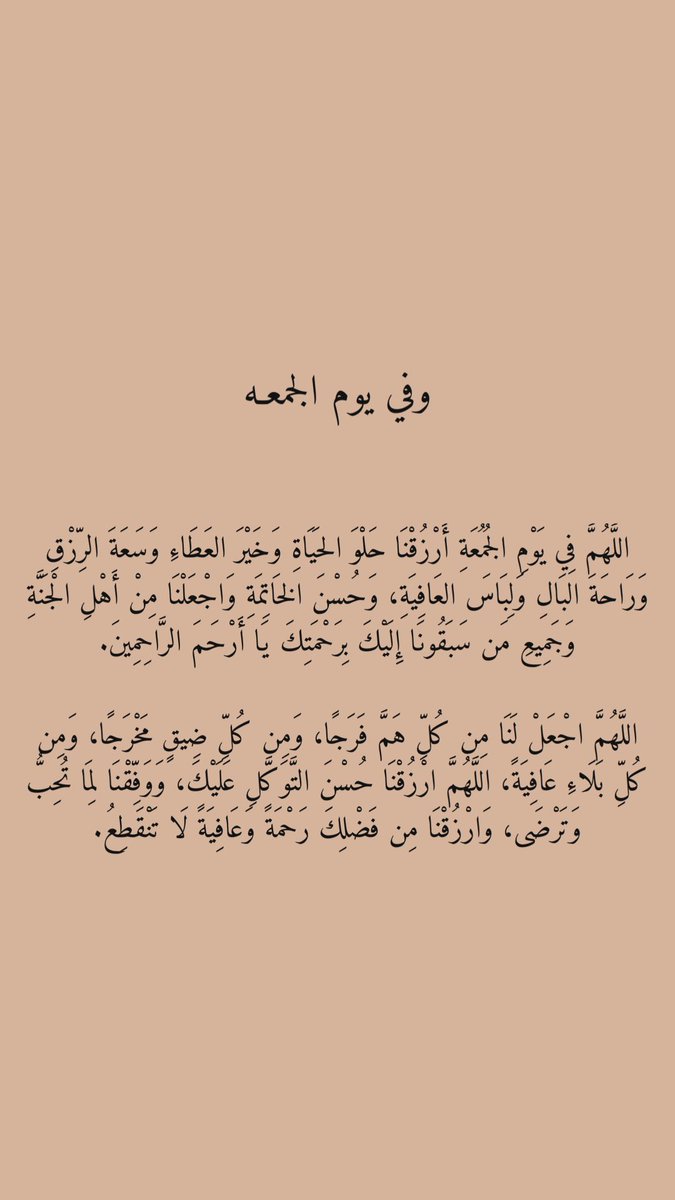 وفي يوم الجمعه
اللَّهُمَّ فِي يَوْمِ الجُمُعَةِ أَرْزُقْنَا حَلْوَ الحَيَاةِ وَخَيْرَ العَطَاءِ وَسَعَةَ الرِّزْقِ
وَرَاحَةَ البَالِ وَلِبَاسَ العَافِيَةِ، وَحُسْنَ الخَاتِمَةِ وَاجْعَلْنَا مِنْ أَهْلِ الْجَنَّةِ
وَجَمِيعِ مَن سَبَقُونَا إِلَيْكَ بِرَحْمَتِكَ يَا أَرْحَمَ الرَّاحِمِينَ.
اللَّهُمَّ اجْعَلْ لَنَا مِن كُلِّ هَمَّ فَرَجًا، وَمِن كُلِّ ضِيقٍ مَخْرَجًا، وَمِن
كُلِّ بَلَاءِ عَافِيَةً، اللَّهُمَّ ارْزُقْنَا حُسْنَ التَّوَكَّلِ عَلَيْكَ، وَوَفِّقْنَا لِمَا تُحِبُّ
وَتَرْضَى، وَارْزُقْنَا مِن فَضْلِكَ رَحْمَةً وَعَافِيَةً لَا تَنْقَطِعُ.